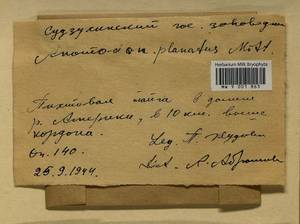 Судзухинский гос. заповедник
Anomodon planatus Mitt.
Herbarium MW, Bryophyta
MW 9 001 863
Пихтовая тайга в долине
р. Америки, в 10 км. выше
кордона.
Leg. П. 
Оп. 140.
25.9.1944.
Det. А. Абрамова